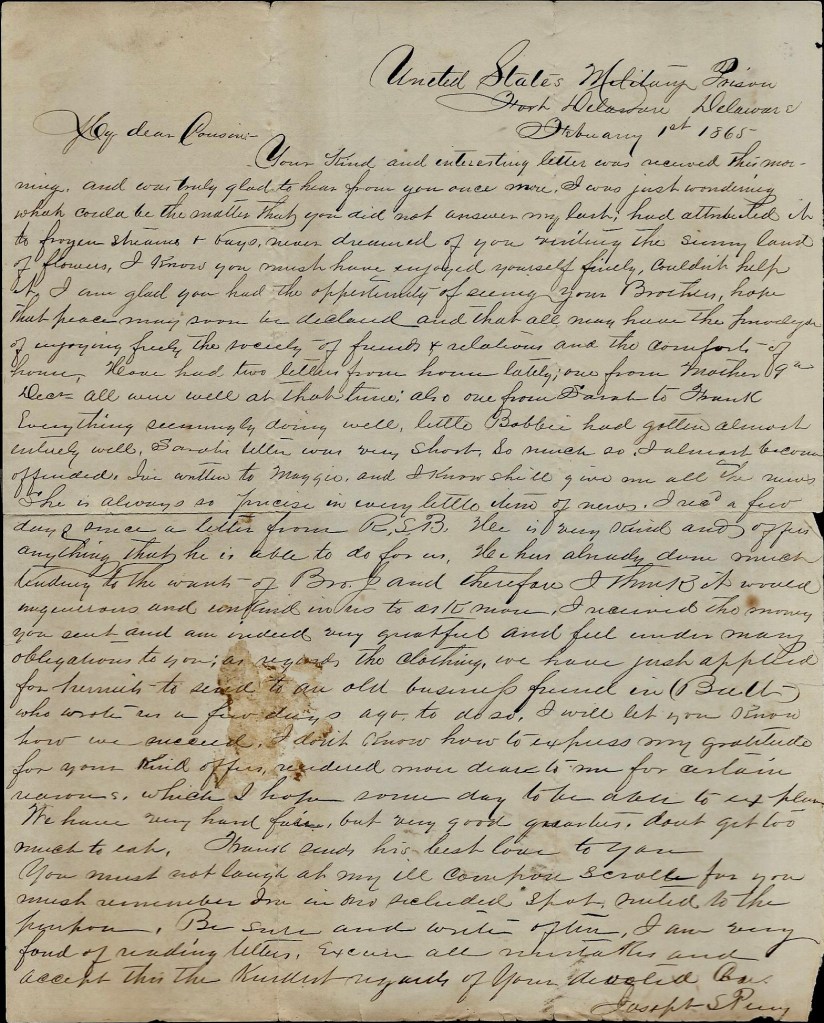 United States Military Prison
Fort Delaware Delaware
February 1st 1865
My dear Cousin:-
Your kind and interesting letter was received this mor-
ning. and was truly glad to hear from you once more. I was just wondering
what could be the matter that you did not answer my last; had attributed it
to frozen streams & bays, never dreamed of you visiting the sunny land
of flowers. I know you must have enjoyed yourself finely, couldn't help
it. I am glad you had the opportunity of seeing your Brothers, hope
that peace may soon be declared and that all may have the priviledge
of enjoying freely the society of friends & relations and the comforts of
home. Have had two letters from home lately; one from Mother 9th
Decr all were well at that time; also one from Sarah to Frank
Everything seemingly doing well, little Bobbie had gotten almost
entirely well, Sarah's letter was very short. So much so, I almost become
offended. I've written to Maggie. and I know she'll give me all the news
She is always so precise in every little item of news. I recd a few
days since a letter from R.S.B. He is very kind and offers
anything that he is able to do for us. He has already done much
tending to the wants of Bro. J and therefore I think it would
ungenerous and unkind in us to ask more. I received the money
you sent and am indeed very grateful and feel under many
obligations to you; as regards the clothing, we have just applied
for permits to send to an old business friend in (Balt)
who wrote us a few days ago. to do so. I will let you know
how we succeed. I don't know how to express my gratitude
for your kind offers, rendered more dear to me for certain
reasons. which I hope some day to be able to explain
We have very hard fare, but very good quarters. dont get too
much to eat. Frank sends his best love to you
You must not laugh at my ill compose scroll for you
must remember I'm in no secluded spot, suited to the
purpose. Be sure and write often, I am very
fond of reading letters. Excuse all mistakes and
accept this the kindest regards of Your devoted Coz.
Joseph S